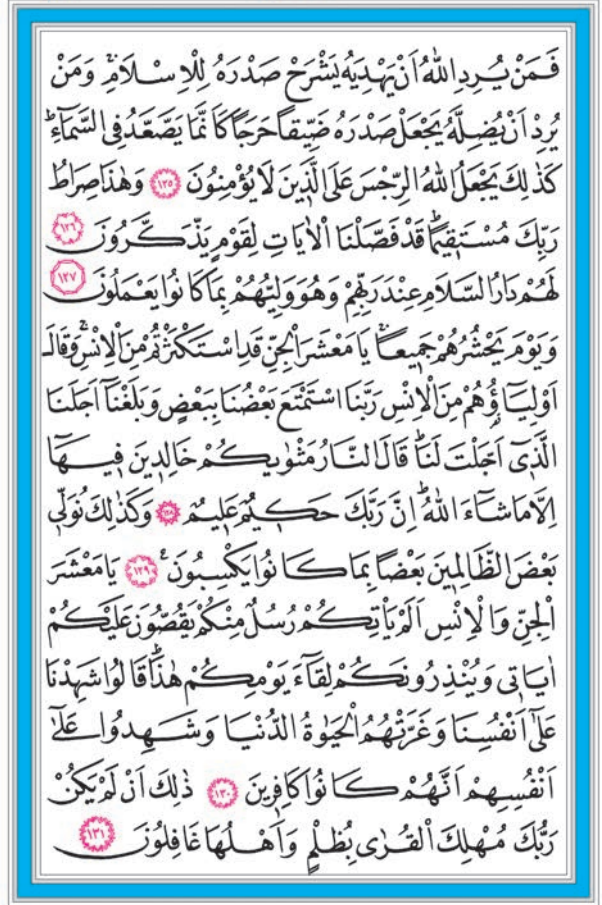 فَمَنْ يُرِدِ اللّٰهُ اَنْ يَهْدِيَهُ يَشْرَحْ صَدْرَهُ لِلْاِسْلَامِۚ وَمَنْ
يُرِدْ اَنْ يُضِلَّهُ يَجْعَلْ صَدْرَهُ ضَيِّقًا حَرَجًا كَاَنَّمَا يَصَّعَّدُ فِي السَّمَٓاءِۜ
كَذٰلِكَ يَجْعَلُ اللّٰهُ الرِّجْسَ عَلَى الَّذ۪ينَ لَا يُؤْمِنُونَ ﴿١٢٥﴾ وَهٰذَا صِرَاطُ
رَبِّكَ مُسْتَق۪يمًاۜ قَدْ فَصَّلْنَا الْاٰيَاتِ لِقَوْمٍ يَذَّكَّرُونَ ﴿١٢٦﴾
لَهُمْ دَارُ السَّلَامِ عِنْدَ رَبِّهِمْ وَهُوَ وَلِيُّهُمْ بِمَا كَانُوا يَعْمَلُونَ ﴿١٢٧﴾
وَيَوْمَ يَحْشُرُهُمْ جَم۪يعًاۚ يَا مَعْشَرَ الْجِنِّ قَدِ اسْتَكْثَرْتُمْ مِنَ الْاِنْسِۚ وَقَالَ
اَوْلِيَٓاؤُ۬هُمْ مِنَ الْاِنْسِ رَبَّنَا اسْتَمْتَعَ بَعْضُنَا بِبَعْضٍ وَبَلَغْنَٓا اَجَلَنَا
الَّذ۪ٓي اَجَّلْتَ لَنَاۜ قَالَ النَّارُ مَثْوٰيكُمْ خَالِد۪ينَ ف۪يهَٓا
اِلَّا مَا شَٓاءَ اللّٰهُۜ اِنَّ رَبَّكَ حَك۪يمٌ عَل۪يمٌ ﴿١٢٨﴾ وَكَذٰلِكَ نُوَلّ۪ي
بَعْضَ الظَّالِم۪ينَ بَعْضًا بِمَا كَانُوا يَكْسِبُونَ۟ ﴿١٢٩﴾ يَا مَعْشَرَ
الْجِنِّ وَالْاِنْسِ اَلَمْ يَأْتِكُمْ رُسُلٌ مِنْكُمْ يَقُصُّونَ عَلَيْكُمْ
اٰيَات۪ي وَيُنْذِرُونَكُمْ لِقَٓاءَ يَوْمِكُمْ هٰذَاۜ قَالُوا شَهِدْنَا
عَلٰٓى اَنْفُسِنَا وَغَرَّتْهُمُ الْحَيٰوةُ الدُّنْيَا وَشَهِدُوا عَلٰٓى
اَنْفُسِهِمْ اَنَّهُمْ كَانُوا كَافِر۪ينَ ﴿١٣٠﴾ ذٰلِكَ اَنْ لَمْ يَكُنْ
رَبُّكَ مُهْلِكَ الْقُرٰى بِظُلْمٍ وَاَهْلُهَا غَافِلُونَ ﴿١٣١﴾